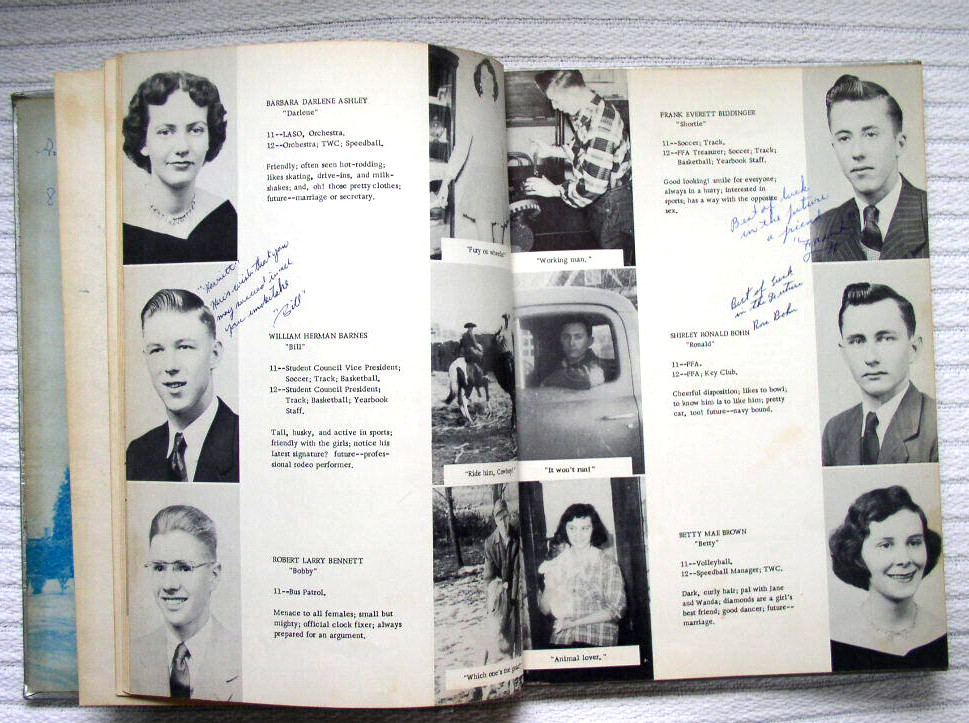 BARBARA DARLENE ASHLEY
"Darlene"
11--LASO, Orchestra.
12--Orchestra; TWC; Speedball.
Friendly; often seen hot-rodding;
likes skating, drive-ins, and milk-
shakes; and, oh! those pretty clothes;
future--marriage or secretary.
that you
may succeed in all
you undertake
"Bill"
WILLIAM HERMAN BARNES
"Bill"
11--Student Council Vice President;
Soccer; Track; Basketball.
12--Student Council President;
Track; Basketball; Yearbook
Staff.
Tall, husky, and active in sports;
friendly with the girls; notice his
latest signature? future--profes-
sional rodeo performer.
ROBERT LARRY BENNETT
"Bobby"
11--Bus Patrol.
Menace to all females; small but
mighty; official clock fixer; always
prepared for an argument.
"Fury on wheels!"
"Ride him, Cowboy!"
"Which one's the
"Working man."
"It won't run!"
"Animal lover."
FRANK EVERETT BIDDINGER
"Shortie"
11--Soccer; Track.
12--FFA Treasurer; Soccer; Track;
Basketball; Yearbook Staff.
Good looking! smile for everyone;
always in a hurry; interested in
sports; has a way with the opposite
sex.
Best of luck
in the future
a friend
Best of luck
in the future
Ron Bohn
SHIRLEY RONALD BOHN
"Ronald"
11--FFA.
12--FFA; Key Club.
Cheerful disposition; likes to bowl;
to know him is to like him; pretty
car, too! future--navy bound.
BETTY MAE BROWN
"Betty"
11--Volleyball.
12--Speedball Manager; TWC.
Dark, curly hair; pal with Jane
and Wanda; diamonds are a girl's
best friend; good dancer; future--
marriage.